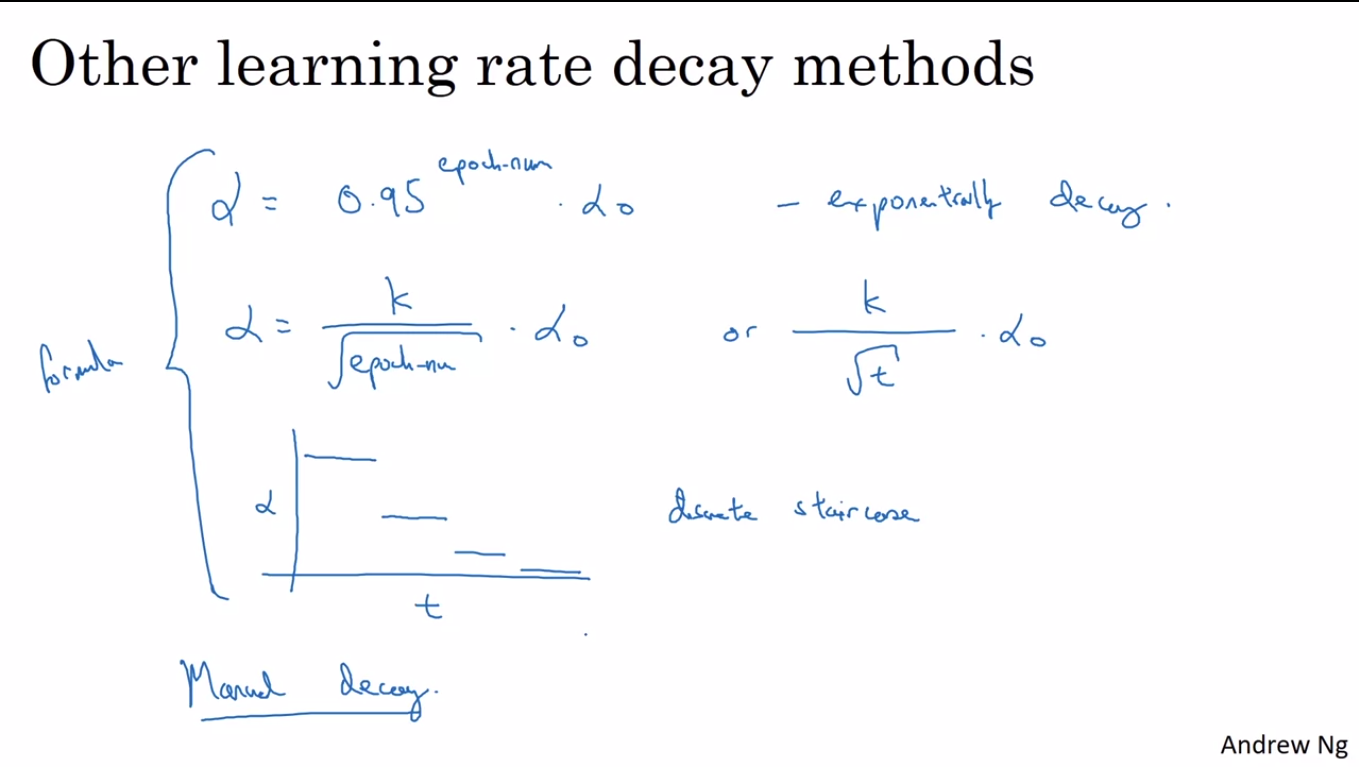 Other learning rate decay methods
α = 0.95^epoch-num · α₀ - exponentially decay.
α = k / √epoch-nu · α₀ or k / √t · α₀
formula
α
discrete staircase
t
Manual decay.
Andrew Ng